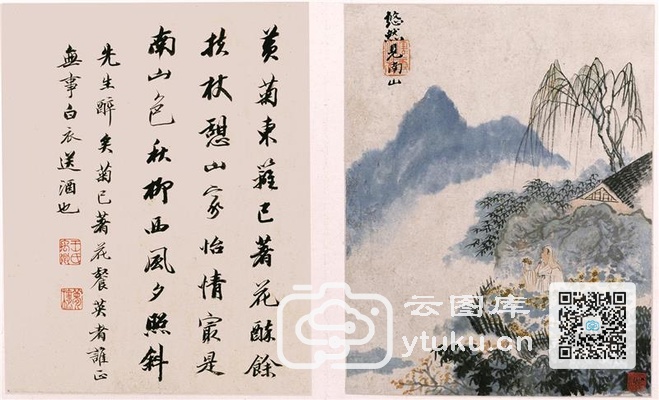 悠然見南山
黄菊東籬已著花餘
扶杖憩山家怡情最是
南山色秋柳西風夕照斜
先生醉矣菊已著花餐英者誰正
無事白衣送酒也
云图库
ytuku.com